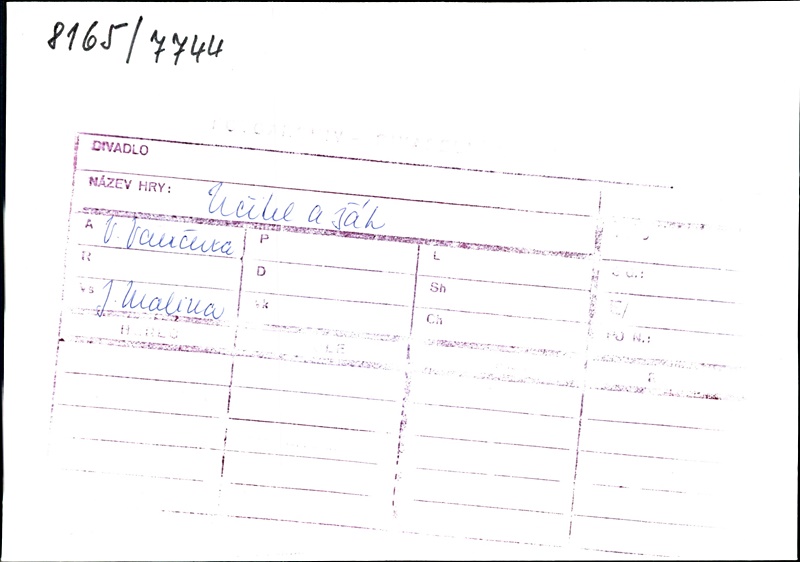 8165/7744
DIVADLO
NÁZEV HRY: Učitel a žák
A V. Vančura P L
R D Sh
Vs J. Malina Ch